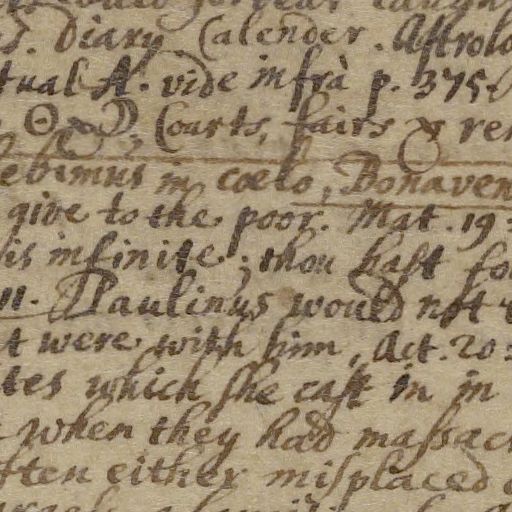 Diary Calender. Astrolo
tual A. vide infrà p. 375.
Courts, fairs & re
ebimus in cœlo, Bonaven
give to the poor. Mat. 19
is infinite; thou hast fo
11. Paulinus would not
t were with him, Act. 20
tes which she cast in in
when they had massac
ften either misplaced